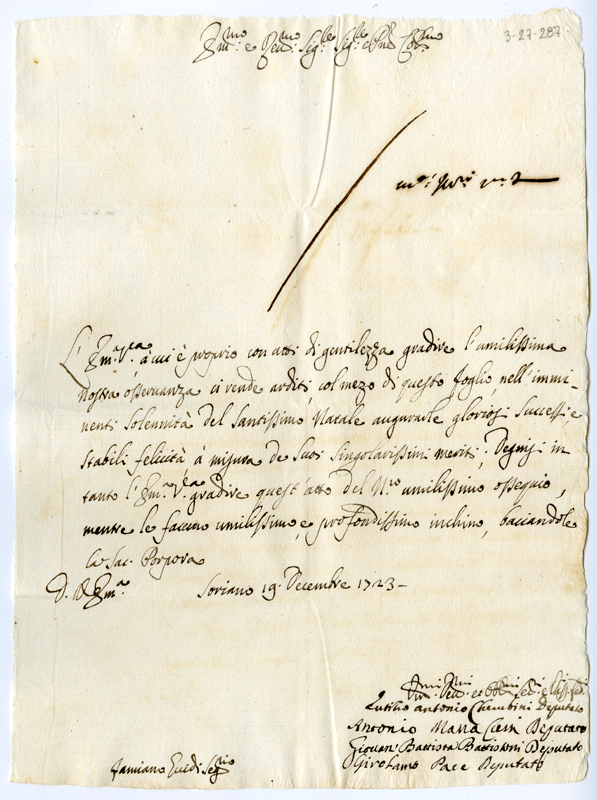 Em:mo e Reu:mo Sig:re Sig:re e Pne Col:mo
3-27-287
L'Em:a V:ra à cui è proprio con atti di gentilezza gradire l'umilissima
nostra osseruanza ci rende arditi col mezo di questo foglio nell'immi-
nenti solennità del Santissimo Natale augurarle gloriosi successi, e
stabili felicità à misura de Suoi singolarissimi meriti; Degnisi in
tanto l'Em:a V:ra gradire quest'atto del N:ro umilissimo ossequio,
mentre le faccino umilissimo, e profondissimo inchino, baciandole
la Sac: Porpora
D. V. Em:a Soriano 19. Decembre 1723-
Vmi: Deu: et Obl:
Antonio Cherubini Deputato
Antonio Maria Deputato
Giouan Battista Battistoni Deputato
Girolamo Pace Deputato
Seg:rio